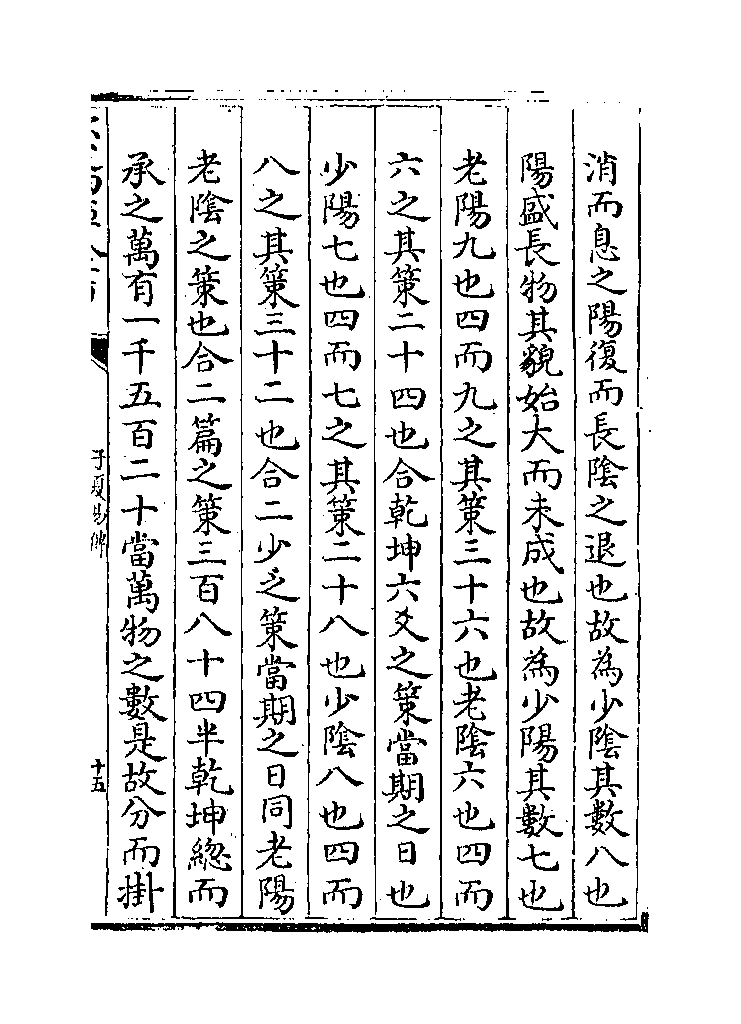 消而息之陽復而長陰之退也故為少陰其數八也
陽盛長物其貌始大而未成也故為少陽其數七也
老陽九也四而九之其策三十六也老陰六也四而
六之其策二十四也合乾坤六爻之策當期之日也
少陽七也四而七之其策二十八也少陰八也四而
八之其策三十二也合二少之策當期之日同老陽
老陰之策也合二篇之策三百八十四半乾坤總而
承之萬有一千五百二十當萬物之數是故分而掛
子夏易傳
十五